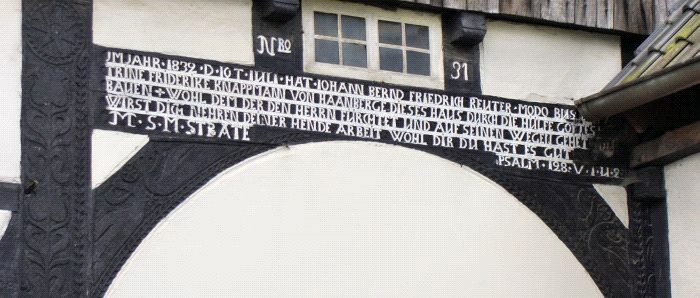 NRO
31
JM JAHR · 1839 · D · 10T · IULI · HAT · IOHANN BERND FRIEDRICH REUTER · MODO BUS
TRINE FRIDERIKE KNAPPMANN VON HAANBERGE DIESES HAUS DURCH DIE HULFE GOTTES
BAUEN + WOHL DEM DER DEN HERRN FURGTET UND AUF SEINEN WEGEN GEHET
WIRST DIG NEHREN DEINER HENDE ARBEIT WOHL DIR DU HAST ES GUT
M · S · M · STRATE
PSALM · 128 · V · 1 · U · 2 ·